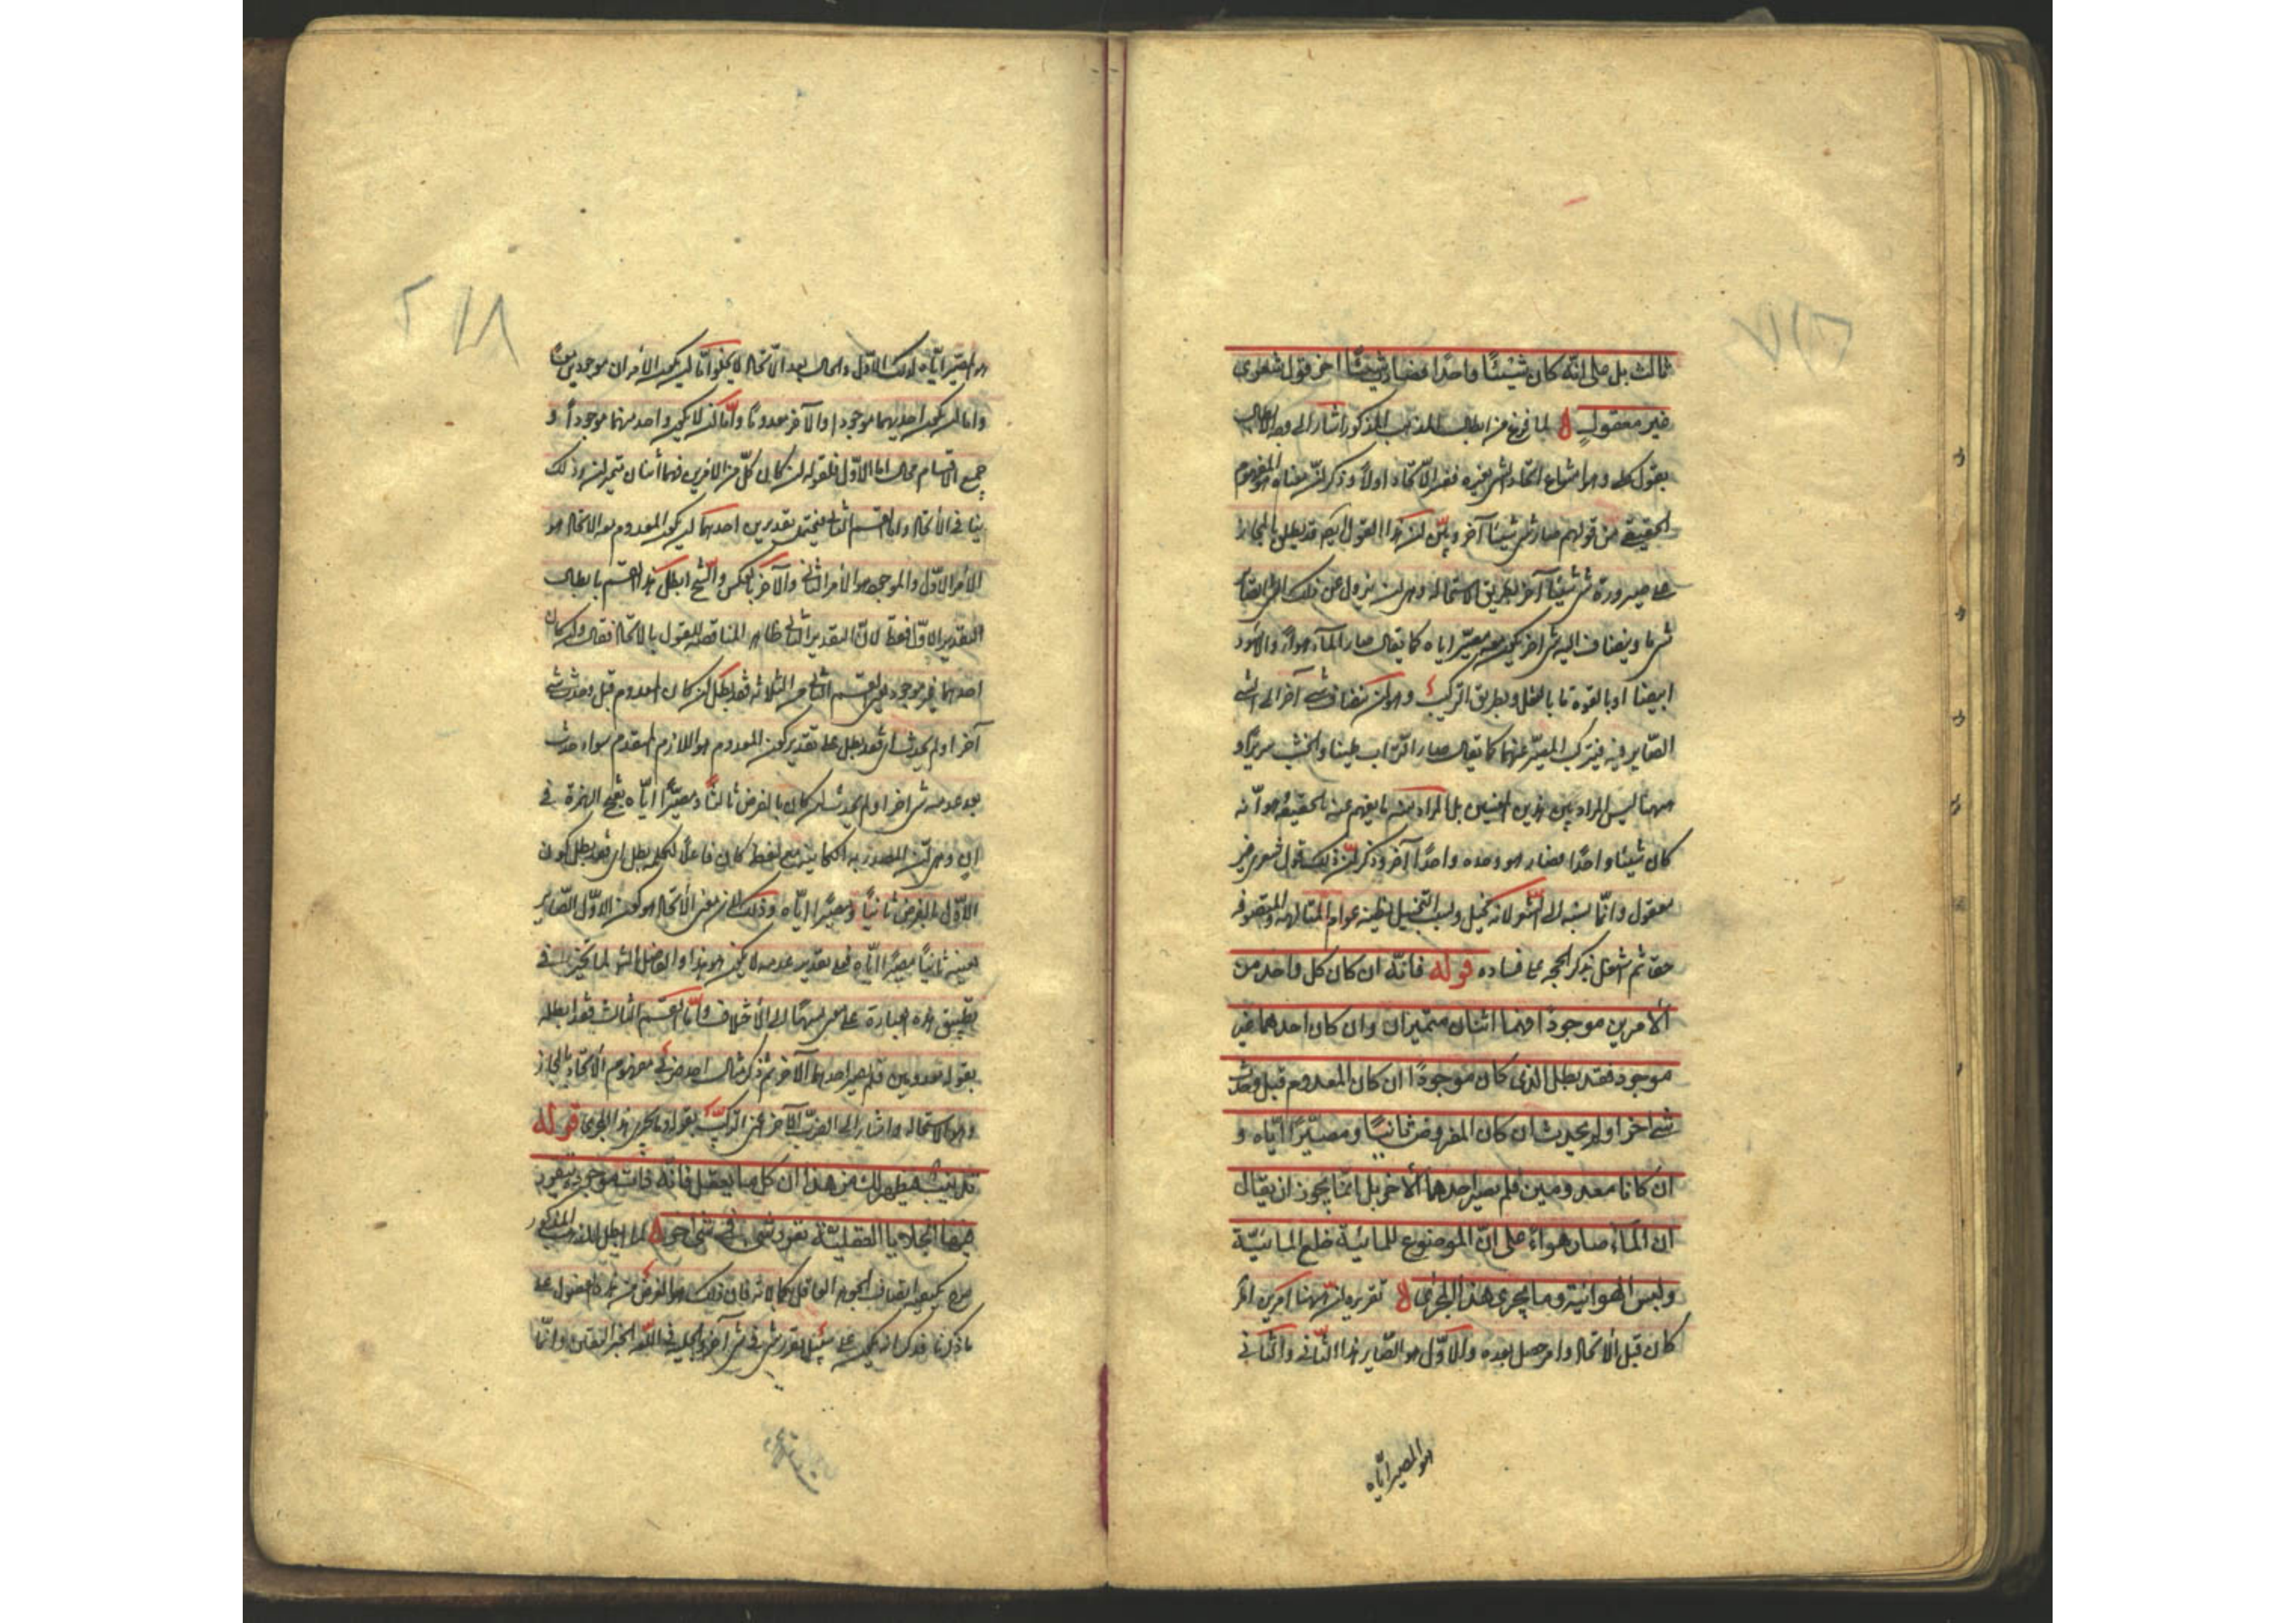 ثالث بل على انّه كان شيئًا واحدًا فصار شيئًا اخر قول شعرى
غير معقولٍ لما فرغ من ابطال المذهب المذكور اشار الى وجه ابطاله
بقول كلى وهو امتناع اتحاد الشئ بغيره ففسر الاتّحاد اولاً وذكر انّ معناه المفهوم
الحقيقى من قولهم صار شئ شيئا آخر وبيّن ان هذا القول قد يطلق بالمجاز
على صيرورة شئ شيئًا آخر بطريق الاستحالة وهى ان يزول عن ذلك الشئ
شئ ما وينضاف اليه شئ اخر يكون معه مصيّرا اياه كما يقال صار الماء هواءً والاسود
ابيضا او بالقوة ما بالفعل وبطريق التركيب وهو ان ينضاف شئ آخر الى الشئ
الصّاير فيتركب المصيّر عنهما كما يقال صار التراب طينا والخشب سريرًا و
ههنا ليس المراد من هذين المعنيين بل المراد منه ما يفهم عنه بالحقيقة هو انّه
كان شيئا واحدًا فصار هو وحده واحدًا آخر وذكر انّ ذلك قول شعرى غير
معقول وانّما نسبه الى الشعر لانه تخيل وبسبب التخيل يظنه عوام المتالهة والمتصوفة
حقا ثم اشتغل بذكر الحجة على فساده قوله فانّه ان كان كل واحد من
الأمرين موجودًا فهما اثنان متميزان وان كان احدهما غير
موجود فقد بطل الذى كان موجودًا ان كان المعدوم قبل وحدث
شئ اخر او لم يحدث ان كان المفروض ثانيًا ومصيّرًا ايّاه و
ان كانا معدومين فلم يصر احدهما الأخر بل انّما يجوز ان يقال
ان الماء صار هواءً على انّ الموضوع للمائيّة خلع المائيّة
ولبس الهوائية وما يجرى هذا المجرى تقريره انّ ههنا امرين امر
كان قبل الاتحاد وامر حصل بعده والاوّل هو الصّاير هذا الثّانى والثّانى
هو المصير ايّاه
هو المصيّر ايّاه لذلك الاوّل والحال بعد الاتّحاد لا يخلو امّا ان يكون الأمران موجودين
واما ان يكون احدهما موجودا والآخر معدومًا وامّا ان لا يكون واحد منهما موجودًا و
جميع الاقسام محال اما الاوّل فلقوله ان كان كلّ من الامرين فهما اثنان متميزان وذلك
ينافى الاتحاد واما القسم الثانى فيحتمل تقديرين احدهما ان يكون المعدوم بعد الاتحاد هو
الأمر الاوّل والموجود هو الأمر الثانى والآخر بالعكس والشّيخ ابطل هذا القسم بابطال
التقدير الاوّل فقط لانّ التقدير الثانى ظاهر المناقضة للقول بالاتّحاد فقال وان كان
احدهما غير موجود القسم الثانى من الثلاثه فقد بطل ان كان المعدوم قبل وحدث شئ
آخر او لم يحدث اى فقد بطل على تقدير كون المعدوم هو اللازم المتقدم سواء حدث
بعد عدمه شئ اخر او لم يحدث ان كان بالفرض ثالثًا ومصيّرًا ايّاه بفتح الهمزة فى
ان وهى انّ المصدرية الكاينة مع لفظ كان فاعلاً لكلمة بطل اى فقد بطل كون
الاوّل بالفرض ثانيًا ومصيّرًا ايّاه وذلك لان معنى الأتحاد هو كون الاوّل الصّاير
بعينه ثانيًا مصيرًا ايّاه فعلى تقدير عدمه لا يكون هو هذا والفاضل الشارح لما تحيّر فى
تطبيق هذه العبارة على معنى نسبها الى الأختلاف وامّا القسم الثالث فقد ابطله
بقوله معدومين فلم يصر احدهما الآخر ثم ذكر مثال احد ضربى مفهوم الاتّحاد بالمجاز
وهو الاستحالة واشار الى الضرب الآخر اعنى التركيب بقوله وما يجرى هذا المجرى قوله
تذنيب فيظهر لك من هذا ان كل ما يعقل فانّه ذات موجودة يتقرر
فيها الجلايا العقليّة تقرر شئ فى شئ اخر لما ابطل المذهب المذكور
بيّن كيفية اتصاف الجوهر العاقل بكمالاته فان ذلك هو الغرض من هذه الفصول على
ما ذكرناه فذكر انه يكون على سبيل تقرر شئ فى شئ آخر والجلية فى اللّغة الخبر اليقين وانّما